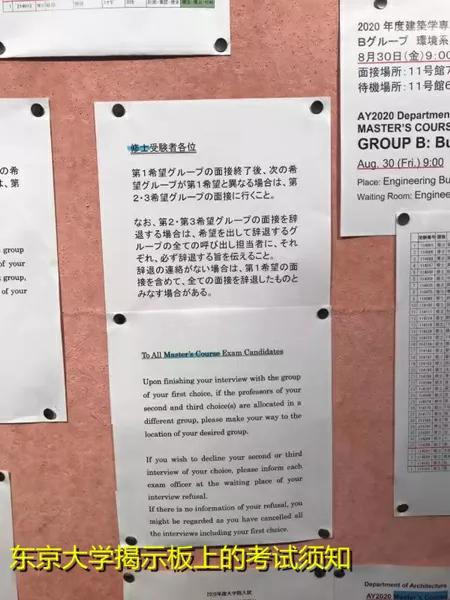 修士受験者各位
第1希望グループの面接終了後、次の希
望グループが第1希望と異なる場合は、第
2・3希望グループの面接に行くこと。
なお、第2・第3希望グループの面接を辞
退する場合は、希望を出して辞退するグ
ループの全ての呼び出し担当者に、それ
ぞれ、必ず辞退する旨を伝えること。
辞退の連絡がない場合は、第1希望の面
接を含めて、全ての面接を辞退したものと
みなす場合がある。
To All Master's Course Exam Candidates
Upon finishing your interview with the group
of your first choice, if the professors of your
second and third choice(s) are allocated in a
different group, please make your way to the
location of your desired group.
If you wish to decline your second or third
interview of your choice, please inform each
exam officer at the waiting place of your
interview refusal.
If there is no information of your refusal, you
might be regarded as you have cancelled all
the interviews including your first choice.
2020 年度建築学専
Bグループ 環境系
8月30日(金)9:00
面接場所：11号館7
待機場所：11号館6
AY2020 Departmen
MASTER'S COURS
GROUP B: Bu
Aug. 30 (Fri.) 9:00
Place: Engineering Bu
Waiting Room: Enginee
の希
、第
group
of your
of your
2020年度大学院入試
Department of Architecture
AY2020 Master's Course
东京大学揭示板上的考试须知